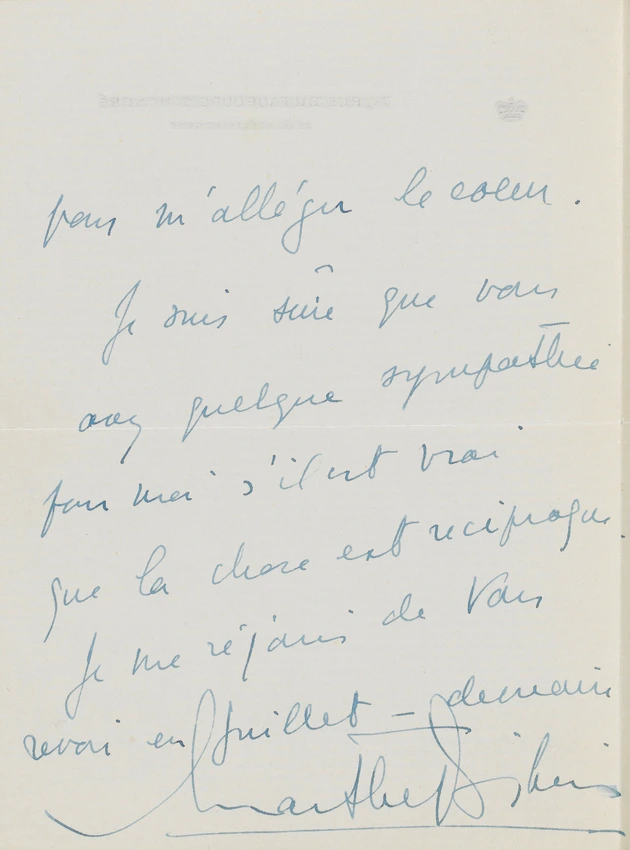 pour m'alléger le coeur.
Je suis sûre que vous
avez quelque sympathie
pour moi s'il est vrai
que la chose est reciproque.
Je me réjouis de vous
revoir en Juillet – demain
Marthe